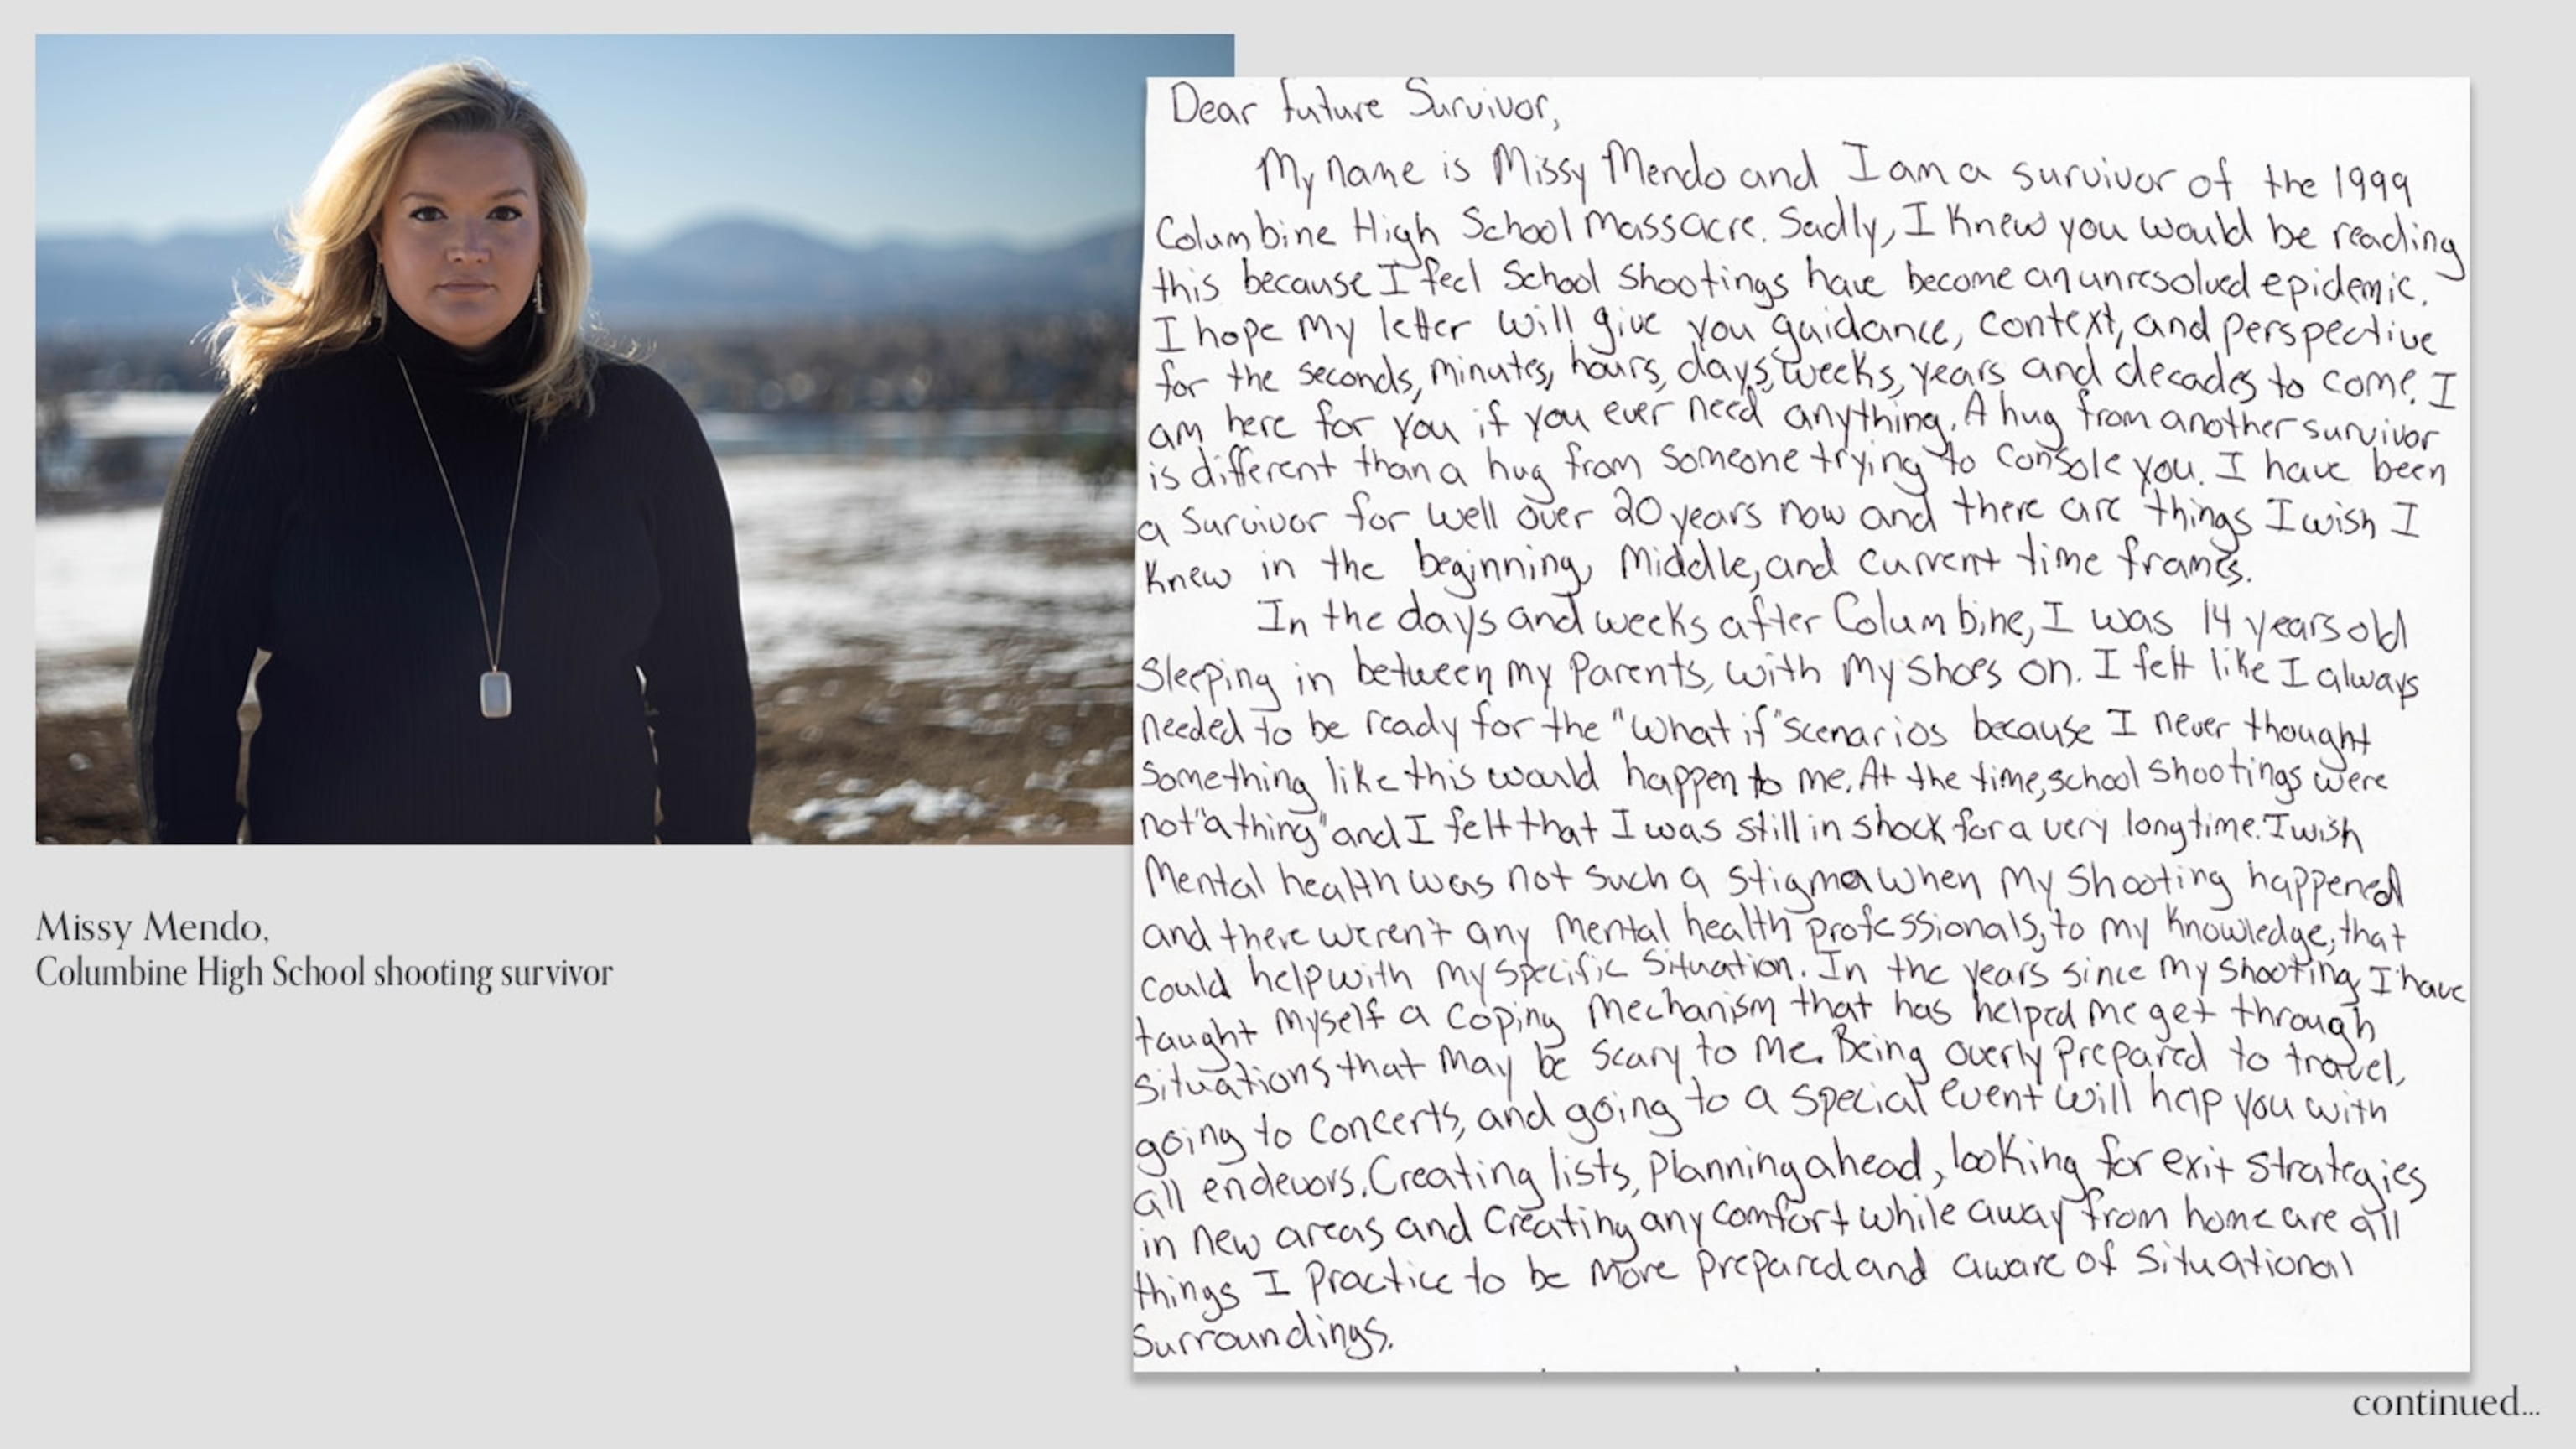 Dear future Survivor,
My name is Missy Mendo and I am a survivor of the 1999
Columbine High School Massacre. Sadly, I knew you would be reading
this because I feel School Shootings have become an unresolved epidemic.
I hope my letter will give you guidance, context, and perspective
for the seconds, minutes, hours, days, weeks, years and decades to come. I
am here for you if you ever need anything. A hug from another survivor
is different than a hug from someone trying to console you. I have been
a survivor for well over 20 years now and there are things I wish I
knew in the beginning, middle, and current time frames.
In the days and weeks after Columbine, I was 14 years old
sleeping in between my parents, with my shoes on. I felt like I always
needed to be ready for the "what if" scenarios because I never thought
something like this would happen to me. At the time, school shootings were
not "a thing" and I felt that I was still in shock for a very long time. I wish
Mental health was not such a stigma when my shooting happened
and there weren't any mental health professionals, to my knowledge, that
could help with my specific situation. In the years since my shooting, I have
taught myself a coping mechanism that has helped me get through
situations that may be scary to me. Being overly prepared to travel,
going to concerts, and going to a special event will help you with
all endevors. Creating lists, planning ahead, looking for exit strategies
in new areas and creating any comfort while away from home are all
things I practice to be more prepared and aware of situational
surroundings.
Missy Mendo,
Columbine High School shooting survivor
continued...